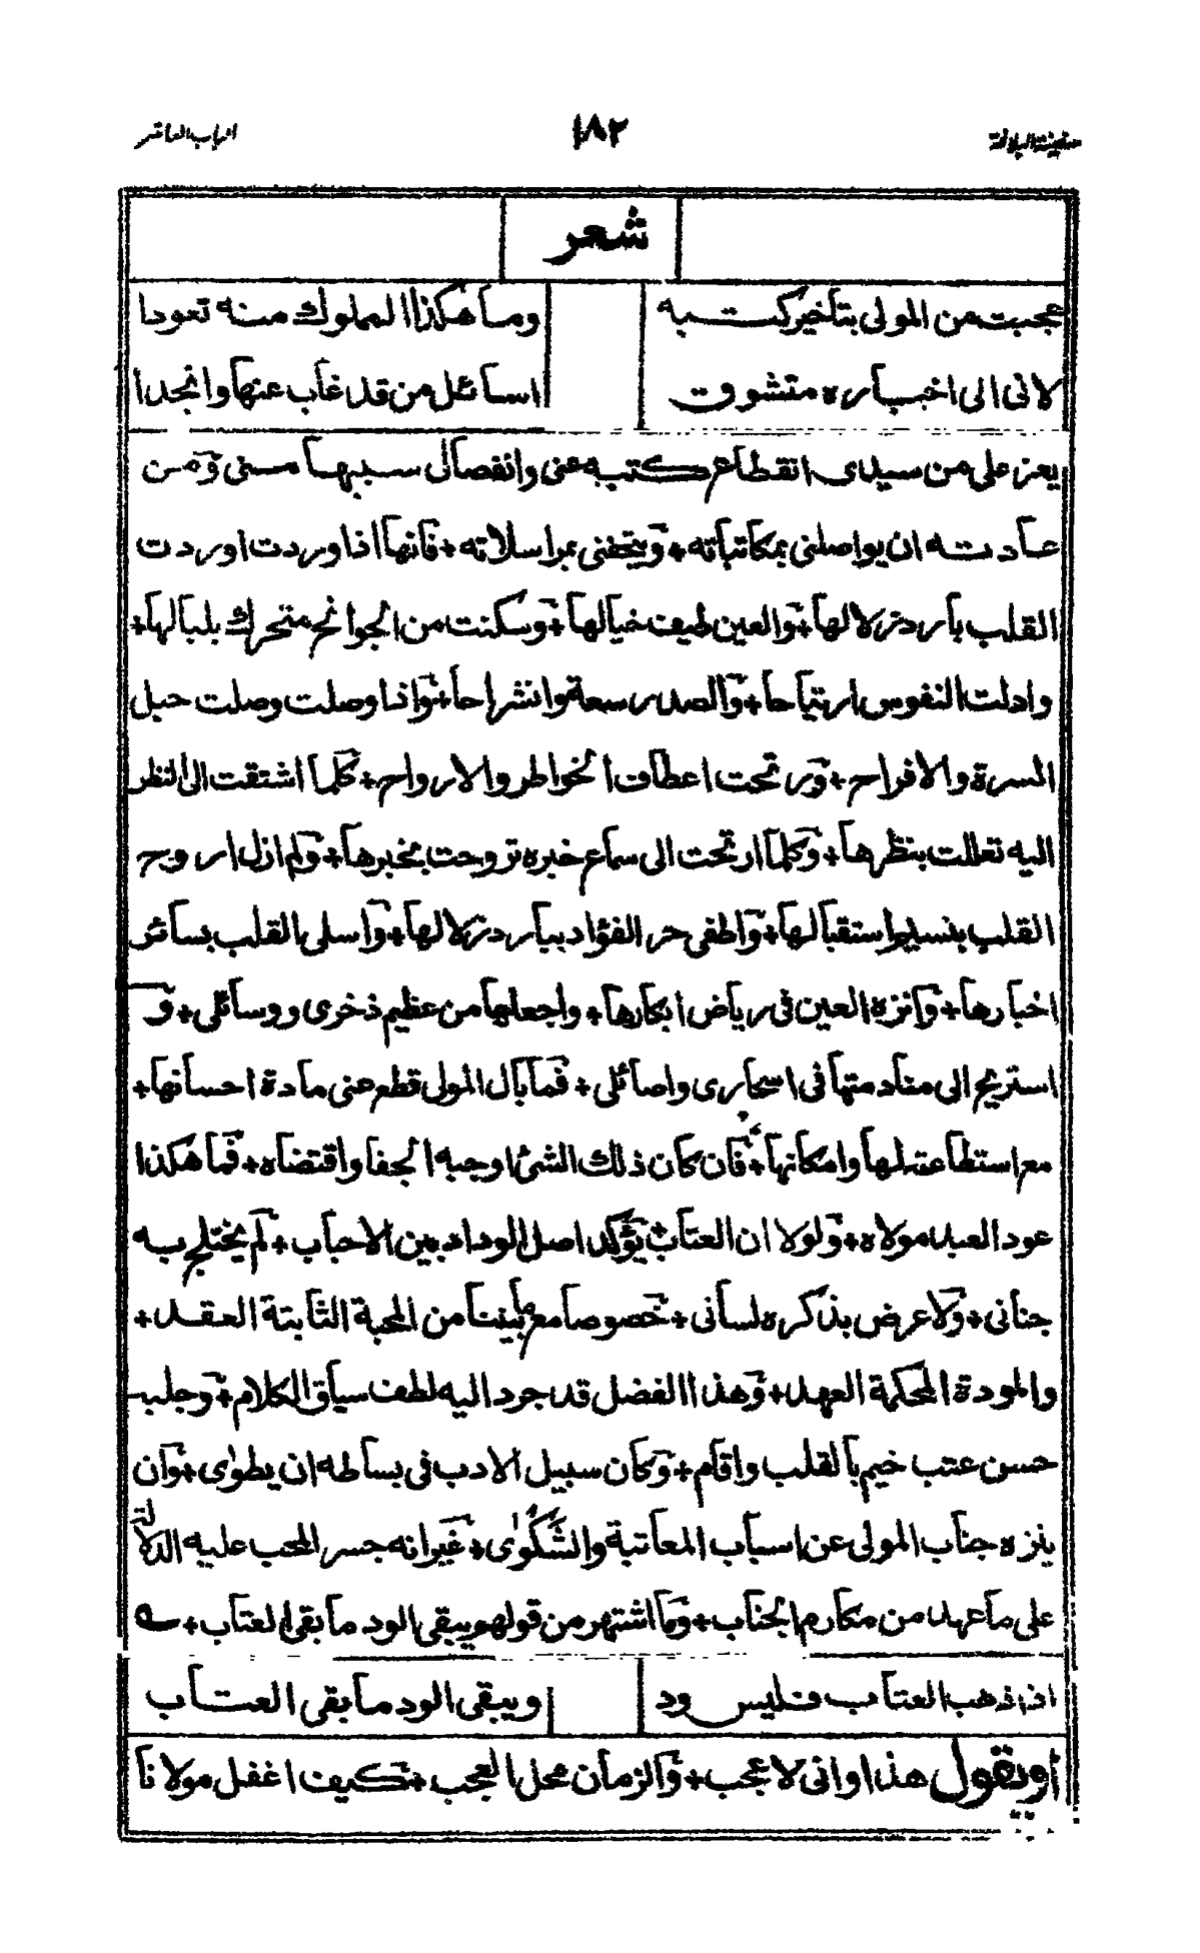 سفينة البلاغة ١٨٢ الباب العاشر
شعر
عجبت من المولى بتأخير كتبه وما هكذا المملوك منه تعودا
لانى الى اخباره متشوق اسائل من قد غاب عنها وانجدا
يعز على من سيدى انقطاع كتبه عنى وانفصال سببها منى وَمن
عادته ان يواصلنى بمكاتباته + وَيتحفنى بمراسلاته + فَانها اذا وردت اوردت
القلب بارد زلالها + وَالعين طيف خيالها + وَسكنت من الجوانح متحرك بلبالها +
وادلت النفوس ارتياحا + وَالصدر سعة وانشراحا + وَاذا وصلت وصلت حبل
المسرة والافراح + وَرنحت اعطاف الخواطر والارواح + كَلما اشتقت الى النظر
اليه تعللت بنظرها + وَكلما ارتحت الى سماع خبره تروحت بمخبرها + وَلم ازل اروح
القلب بنسيم استقبالها + وَاطفى حر الفؤاد ببارد زلالها + وَاسلى القلب بسائر
اخبارها + وَانزه العين فى رياض ابكارها + واجعلها من عظيم ذخرى ووسائلى + وَ
استريح الى منادمتها فى اسحارى واصائلى + فَما بال المولى قطع عنى مادة احسانها +
مع استطاعته لها وامكانها + فَان كان ذلك الشئ اوجبه الجفا واقتضاه + فَما هكذا
عود العبد مولاه + وَلولا ان العتاب يؤكد اصل الوداد بين الاحباب + لَم يختلج به
جنانى + وَلا عرض بذكره لسانى + خَصوصا مع ما بيننا من المحبة الثابتة العقد +
والمودة المحكمة العهد + وَهذا الفضل قد جرد اليه لطف سياق الكلام + وَجلب
حسن عتب خيم بالقلب واقام + وَكان سبيل الادب فى بساطه ان يطوى + وَان
ينزه جناب المولى عن اسباب المعاتبة والشَّكْوٰى + غَيرانه جسر المحب عليه الدلالة
على ما عهد من مكارم الجناب + وَما اشتهر من قولهم يبقى الود ما بقى العتاب + ؎
اذا ذهب العتاب فليس ود ويبقى الود ما بقى العتاب
أو يقول هذا وانى لاعجب + وَالزمان محل العجب + كَيف اغفل مولانا